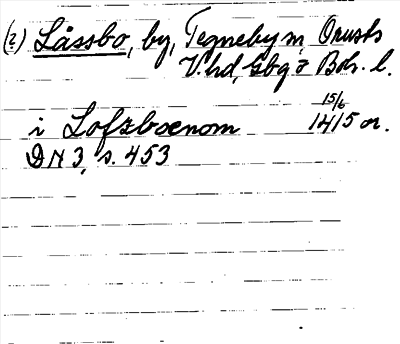 (?) Låssbo, by, Tegneby sn, Orusts
V. hd, Gbg o Boh. l.
i Lofzboenom 15/6 1415 or.
DN 3, s. 453